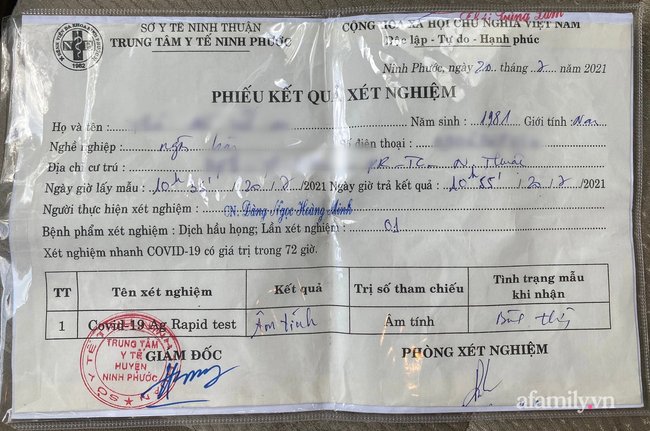 SỞ Y TẾ NINH THUẬN
TRUNG TÂM Y TẾ NINH PHƯỚC
CỘNG HÒA XÃ HỘI CHỦ NGHĨA VIỆT NAM
Độc lập - Tự do - Hạnh phúc
1982
Ninh Phước, ngày 20 tháng 7 năm 2021
PHIẾU KẾT QUẢ XÉT NGHIỆM
Họ và tên : Năm sinh : 1981 Giới tính : Nam
Nghề nghiệp : Số điện thoại :
Địa chỉ cư trú :
Ngày giờ lấy mẫu : 10h 35' / 20 / 7 / 2021 Ngày giờ trả kết quả : 10h 55' / 20 / 7 / 2021
Người thực hiện xét nghiệm : CN. Đàng Ngọc Hoàng Minh
Bệnh phẩm xét nghiệm : Dịch hầu họng; Lần xét nghiệm : 01
Xét nghiệm nhanh COVID-19 có giá trị trong 72 giờ.
TT Tên xét nghiệm Kết quả Trị số tham chiếu Tình trạng mẫu khi nhận
1 Covid-19 Ag Rapid test Âm tính Âm tính
GIÁM ĐỐC PHÒNG XÉT NGHIỆM
TRUNG TÂM
Y TẾ
HUYỆN
NINH PHƯỚC
afamily.vn